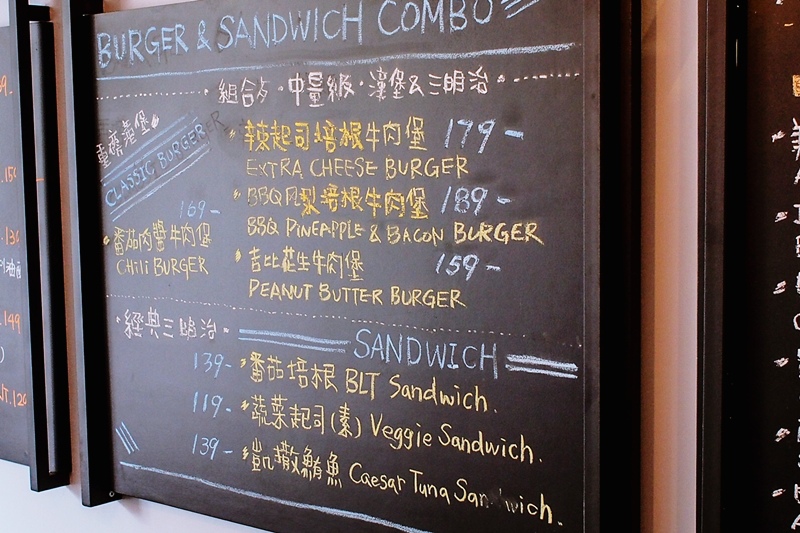 BURGER & SANDWICH COMBO
組合餐·中量級·漢堡&三明治
重磅漢堡
CLASSIC BURGER
辣起司培根牛肉堡 179-
EXTRA CHEESE BURGER
BBQ鳳梨培根牛肉堡 189-
BBQ PINEAPPLE & BACON BURGER
169-
番茄肉醬牛肉堡
CHILI BURGER
吉比花生牛肉堡 159-
PEANUT BUTTER BURGER
經典三明治
SANDWICH
139- 番茄培根 BLT Sandwich.
119- 蔬菜起司(素) Veggie Sandwich.
139- 凱撒鮪魚 Caesar Tuna Sandwich.